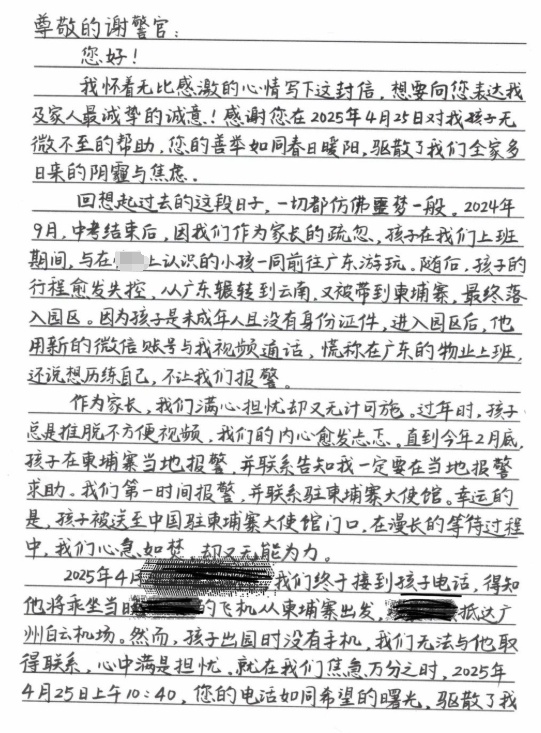 尊敬的谢警官：
您好！
我怀着无比感激的心情写下这封信，想要向您表达我
及家人最诚挚的诚意！感谢您在2025年4月25日对我孩子无
微不至的帮助，您的善举如同春日暖阳，驱散了我们全家多
日来的阴霾与焦虑。
回想起过去的这段日子，一切都仿佛噩梦一般。2024年
9月，中考结束后，因我们作为家长的疏忽，孩子在我们上班
期间，与在上认识的小孩一同前往广东游玩。随后，孩子的
行程愈发失控，从广东辗转到云南，又被带到柬埔寨，最终落
入园区。因为孩子是未成年人且没有身份证件，进入园区后，他
用新的微信账号与我视频通话，慌称在广东的物业上班，
还说想历练自己，不让我们报警。
作为家长，我们满心担忧却又无计可施。过年时，孩子
总是推脱不方便视频，我们的内心愈发忐忑。直到今年2月底，
孩子在柬埔寨当地报警，并联系告知我一定要在当地报警
求助。我们第一时间报警，并联系驻柬埔寨大使馆。幸运的
是，孩子被送至中国驻柬埔寨大使馆门口，在漫长的等待过程
中，我们心急如焚，却又无能为力。
2025年4月我们终于接到孩子电话，得知
他将乘坐当日的飞机从柬埔寨出发，抵达广
州白云机场。然而，孩子出国时没有手机，我们无法与他取
得联系，心中满是担忧。就在我们焦急万分之时，2025年
4月25日上午10:40，您的电话如同希望的曙光，驱散了我